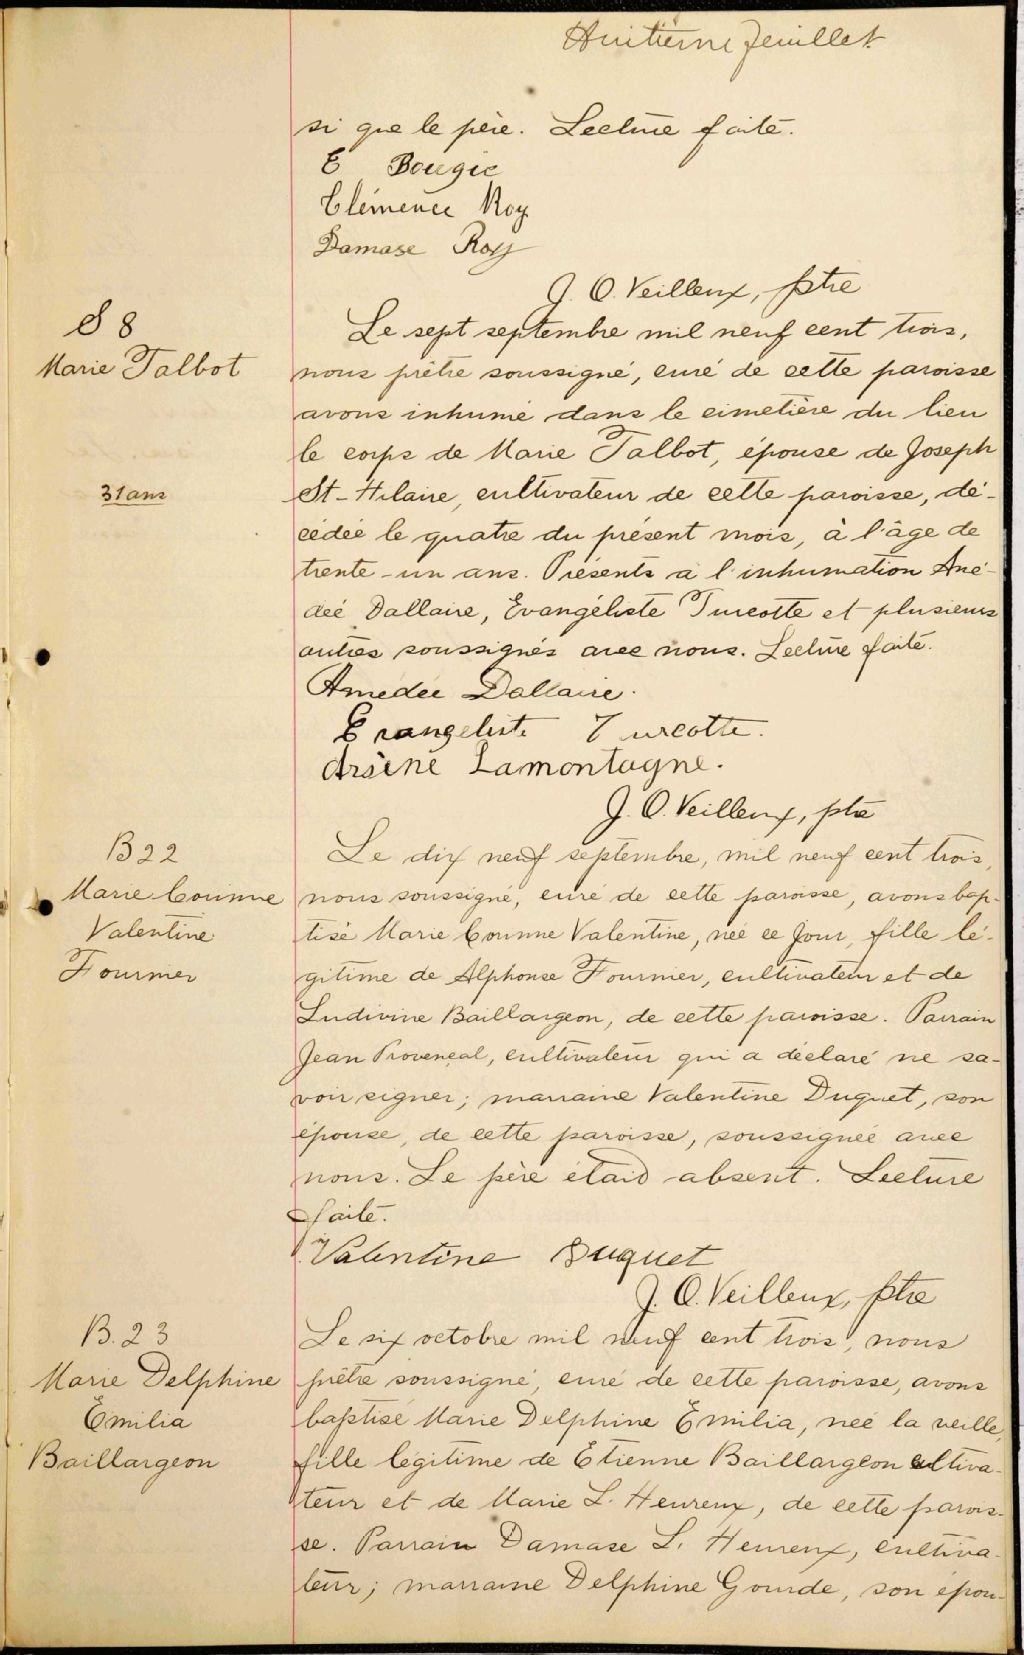 Huitième feuillet
si que le père. Lecture faite.
E Bougie
Clémence Roy
Damase Roy
J. O. Veilleux, ptre
S 8
Marie Talbot
31 ans
Le sept septembre mil neuf cent trois,
nous prêtre soussigné, curé de cette paroisse
avons inhumé dans le cimetière du lieu
le corps de Marie Talbot, épouse de Joseph
St-Hilaire, cultivateur de cette paroisse, dé-
cédée le quatre du présent mois, à l'âge de
trente-un ans. Présents à l'inhumation Amé-
dée Dallaire, Evangéliste Turcotte et plusieurs
autres soussignés avec nous. Lecture faite.
Amedée Dallaire.
Evangeliste Turcotte.
Arsène Lamontagne.
J. O. Veilleux, ptre
B 22
Marie Corinne
Valentine
Fournier
Le dix neuf septembre, mil neuf cent trois,
nous soussigné, curé de cette paroisse, avons bap-
tisé Marie Corinne Valentine, née ce jour, fille lé-
gitime de Alphonse Fournier, cultivateur et de
Ludivine Baillargeon, de cette paroisse. Parrain
Jean Provençal, cultivateur qui a déclaré ne sa-
voir signer; marraine Valentine Duquet, son
épouse, de cette paroisse, soussignée avec
nous. Le père était absent. Lecture
faite.
Valentine Duquet
J. O. Veilleux, ptre
B. 23
Marie Delphine
Emilia
Baillargeon
Le six octobre mil neuf cent trois, nous
prêtre soussigné, curé de cette paroisse, avons
baptisé Marie Delphine Emilia, née la veille,
fille légitime de Etienne Baillargeon cultiva-
teur et de Marie L. Heureux, de cette parois-
se. Parrain Damase L. Heureux, cultiva-
teur; marraine Delphine Gourde, son épou-